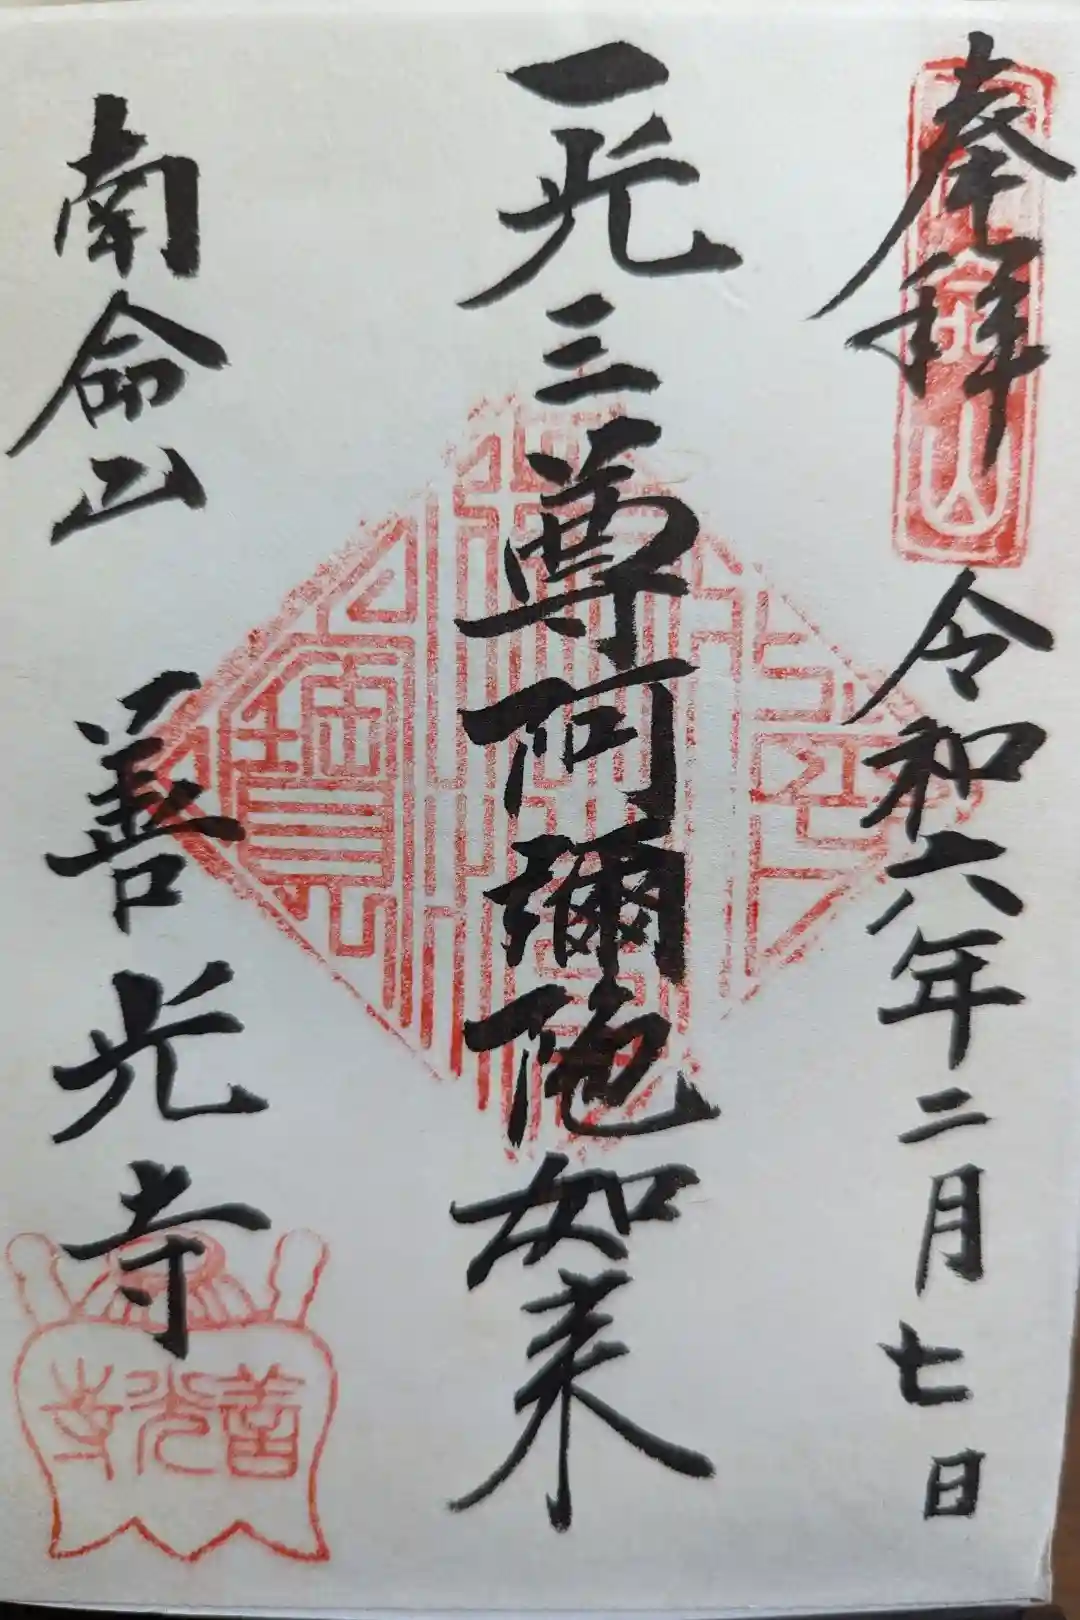 奉拜
令和六年二月七日
一光三尊阿彌陀如来
南命山 善光寺
善光寺